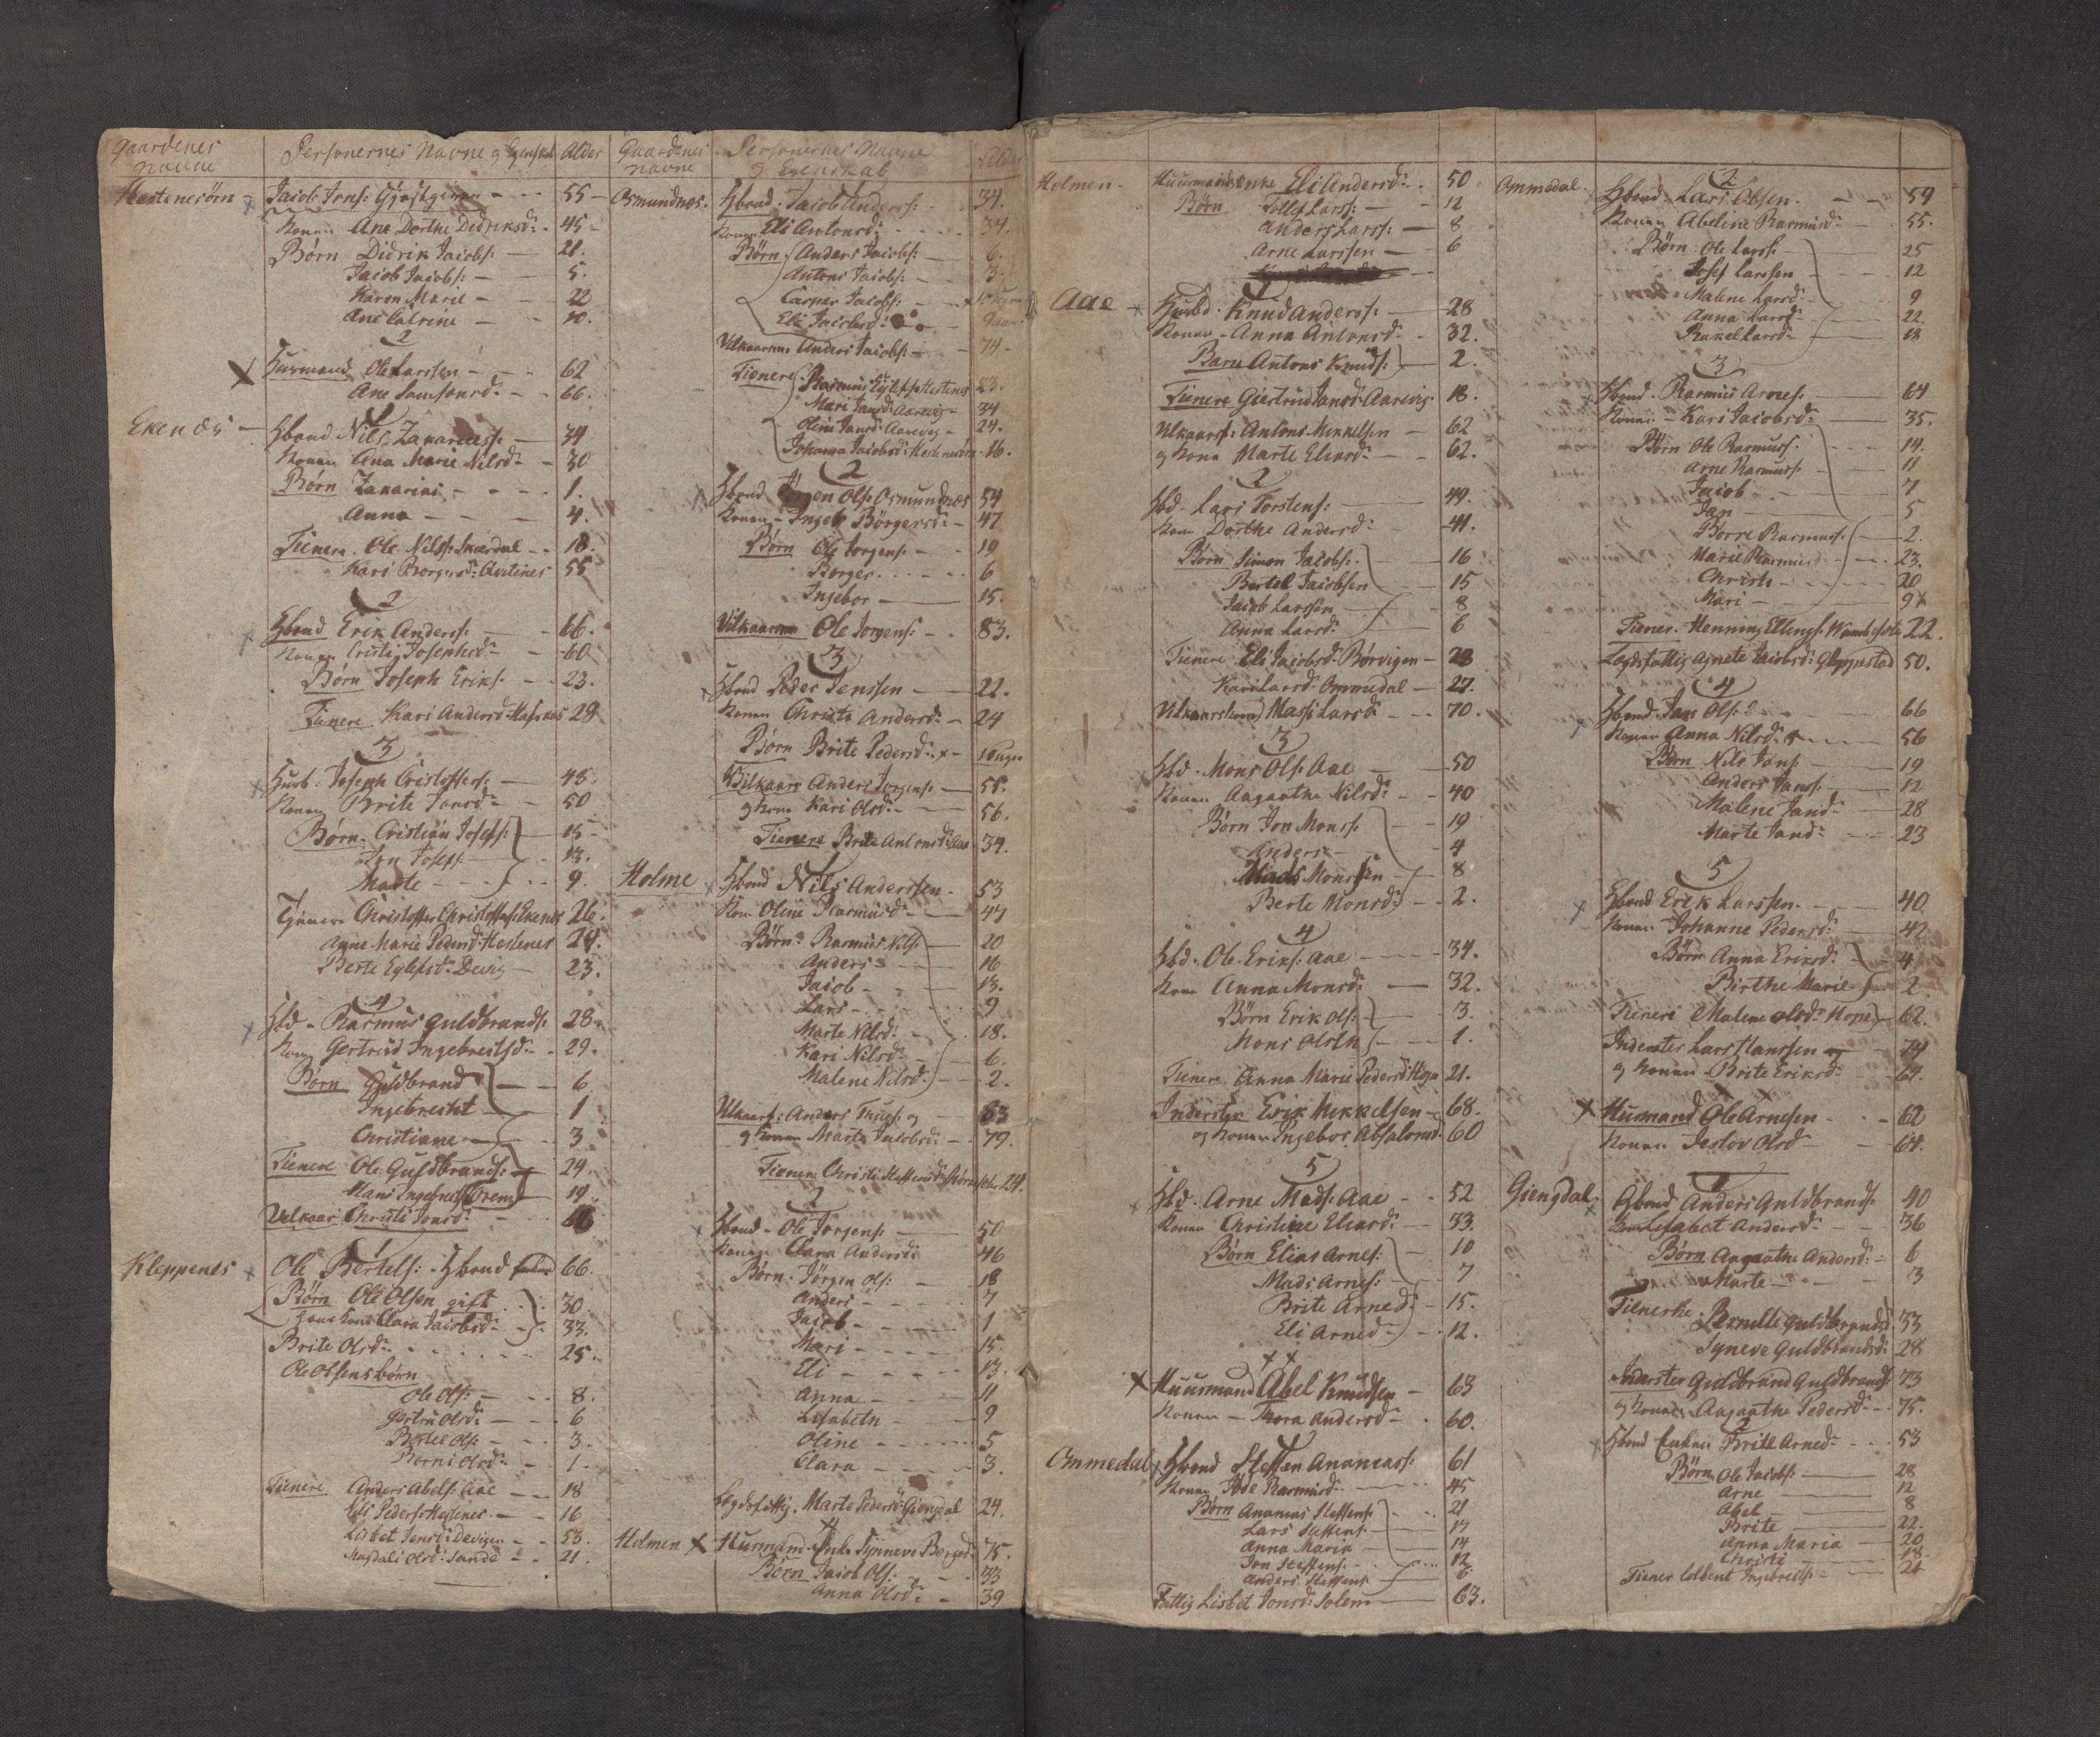 Gaardenes Navne
Personernes Navne og Egenskab
Alder
Hestenesørn
Jacob Jons: Gjæstgiver 55
Konen Ane Dorthe Didriksd: 45
Børn Didrik Jacobs: 21.
Jacob Jacobs: 5.
Karen Marie 22
Ane Catrine 10.
2
Huusmand Ole Larssen 62
Ane Samsonsd: 66.
Ekenæs
1
Hbond Nils Zakariass: 34
Konen Ana Marie Nilsd: 30
Børn Zakarias 1.
Anna 4.
Tienere Ole Nilss: Skærdal 18.
Kari Borgersd: 55
2
Hbond Erik Anderss: 66.
Konen Cristi Josephsd: 60
Børn Joseph Eriks: 23.
Tienere Kari Andersd: 28
3
Husb: Joseph Cristoffers: 45.
Konen Brite Jonsd: 50
Børn Cristian Josephs: 15
Jon Joseps: 13.
Marte 9.
Tjenere Christoffer Christoffers: Ekenes 26.
Anne Marie Pedersd: Hestenes 24.
Berte Eglefsd: Devig 23.
4
Hbd Rasmus Guldbrands: 28.
Kone Gertrud Ingebretsd: 29.
Børn Guldbrand 6
Ingebrecht 1
Christiane 3
Tienere Ole Guldbrands: 24.
Hans Ingebrets: 19.
Velkaar Christi Jonsd:
Kleppenes
1
Ole Bertels: Hbond 66.
Børn Ole Olsen gift 30.
hans Kone Clara Jacobsd: 33.
Brite Olsd: 25.
Ole Olsens børn
Ole Ols: 8.
Gertru Olsd: 6
Bertel Ols: 3.
Berni Olsd: 1.
Tienere Anders Abels: Aae 18
Nils Peders: Hestenes 16
Lisbet Jensd: Devigen 58.
Magdali Olsd: Sande 21.
Gaardenes Navne
Personernes Navne og Egenskab
Alder
Osmundnæs.
Hbond Jacob Anderss: 34.
Konen Eli Antonsd: 34.
Børn Anders Jacobs: 6.
Antons Jacobs: 3.
Casper Jacobs:
Eli Jacobsd:
Vilkaarmand Anders Jacobs: 74.
Tienere Rasmus Eglefs: Hestenes 23.
Mari Jansd: Aarevig 34
Oline Jansd: Aarevig 24.
Johanna Jacobsd: Hestenesørn 16.
2
Hbond Jørgen Ols: Osmundnæs 54
Konen Ingeb: Børgersd: 47
Børn Ole Jorgens: 19
Borger 6
Ingebor 15.
Vilkaarm Ole Jorgens: 83.
3
Hbond Peder Jenssen 22.
Konen Christi Andersd: 24
Børn Brite Pedersd: 10 uger
Vilkaars Anders Jorgens: 58.
og Kone Kari Olsd: 56.
Tienere Brite Antonsd: Aae 34.
Holme
1
Hbond Nils Anderssen 53
Kone Oline Rasmusd: 47
Børn: Rasmus Nils: 20
Anders 16
Jacob 13.
Lars 9
Marte Nilsd: 18.
Kari Nilsd: 6.
Malene Nilsd: 2.
Vilkaars: Anders Trugs: og 83
og konen Marte Jacobsd: 79.
Tienere Christi Steffensd: 24.
2
Hbond Ole Jorgens: 50
Konen Clara Andersd: 46
Børn: Jörgen Ols: 18
Anders 7
Jacob 1
Mari 15.
Eli 13.
Anna 11
Lisabeth 9
Oline 5
Clara 3.
Lægdsfattig. Marte Pedersd: Giengdal 24.
Holmen
Huusmand Enke Synneve Borgsd: 75.
Børn Jacob Ols: 33
Anna Olsd: 39
Holmen
Huusmands Enke Eli Andersd: 50
Børn Tollef Larss: 12
Anders Larss: 8
Arne Larssen 6
Aae
1
Husbd: Knud Anderss: 28
Konen Anna Antonsd: 32.
Barn Antons Knuds: 2.
Tienere Giertrud Jansd: Aarevig. 18.
Vilkaars: Antons Mikkelsen 62
og Kone Marte Eliasd: 62.
2
Hbd Lars Torstens: 49.
Kone Dorthe Andersd: 41.
Børn Simon Jacobs: 16
Bertel Jacobsen 15
Jacob Larssen 8
Anna Larsd: 6
Tienere Eli Jacobsd: Børvigen 28
Kari Larsd: Ommedal 27.
Vilkaarskone Massi Larsd: 70.
3
Hbd. Mons Ols: Aae 50
Konen Aagaathe Nilsd: 40
Børn Jon Monss: 19
Anders 4
Mads Monssen 8
Berte Monsd: 2.
4
Hbd. Ole Eriks: Aae 34.
Kone Anna Monsd: 32.
Børn Erik Ols: 3.
Mons Olsen 1.
Tienere Anna Marie Pedersd: Hope 21.
Inderster Erik Mikkelsen 68.
og konen Ingebor Absalonsd: 60
5
Hbd. Arne Mads: Aae 52
Konen Christine Eliasd: 33.
Børn Elias Arnes: 10
Mads Arnes: 7
Brite Arnesd: 15.
Eli Arnesd: 12.
Huusmand Abel Knudsen 63
Konen Thora Andersd: 60.
Ommedal
1
Hbond Steffen Ananiass: 61
Konen Rasmusd: 45
Børn Ananias Steffens: 21
Lars Steffens: 17
Anna Maria 14
Jon Steffens: 12
Anders Steffens: 6
Fattig Lisbet Jonsd: Solem 63.
Ommedal.
2
Hbond Lars Olsen 59
Konen Abeline Rasmusd: 55.
Børn Ole Larss: 25
Josef Larssen 12
Malene Larsd: 9
Anna Larsd: 22.
Rakel Larsd: 18
3
Hbond Rasmus Arnes: 64
Konen Kari Jacobsd: 35.
Børn Ole Rasmuss: 14.
Arne Rasmuss: 11
Jacob 7
Jan 5
Børre Rasmuss: 2.
Marie Rasmusd: 23.
Christi 20
Mari 9
Tiener Henning Ellings: 22.
Lægdsfattig Agnete Jacobsd: Gloppestad 50.
4
Hbond Jan Ols: 66
Konen Anna Nilsd: 56
Børn Nils Jans: 19
Anders Jans: 12
Malene Jansd: 28
Marte Jansd: 23
5
Hbond Erik Larssen 40
Konen Johanne Pedersd: 42
Børn Anna Eriksd: 4
Birthe Marie 2
Tienere Malene Olsd: Hope 62.
Inderster Lars Hanssen 74
og Konen Brite Eriksd: 67.
Husmand Ole Arnesen 62
Konen Olsd: 64.
Giengdal
1
Hbond Anders Guldbrands: 40
Kone Lisabet Andersd: 36
Børn Aagaathe Andersd: 6
Marte 3
Tieneste Pernille Guldbrandsd: 33
Syneve Guldbrandsd: 28
Inderster Guldbrand Guldbrands: 73
og Konen Aagaathe Pedersd: 75.
2
Hbond Enken Brite Arnesd: 53
Børn Ole Jacobs: 28
Arne 12
Abel 8
Brite 22.
Anna Maria 20
Christi 18.
Tiener Colbent Ingebrets: 26